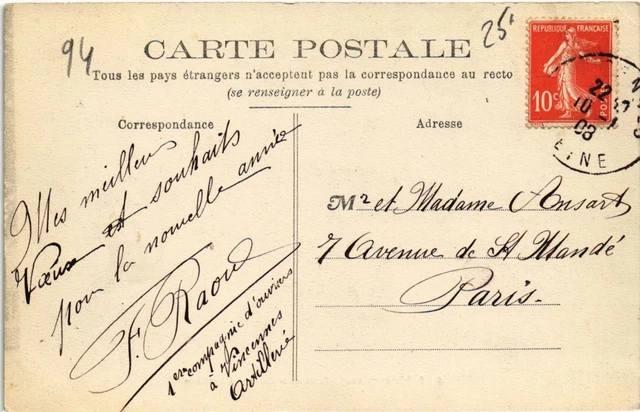 94
25
CARTE POSTALE
Tous les pays étrangers n'acceptent pas la correspondance au recto
(se renseigner à la poste)
Correspondance
Mes meilleurs
Vœux et souhaits
pour la nouvelle année
F. Raoul
1ere compagnie d'ouvriers
à Vincennes
Artillerie
Adresse
REPUBLIQUE FRANÇAISE
10c
POSTES
22
10
08
EINE
Mr et Madame Ansart
7 Avenue de St Mandé
Paris.